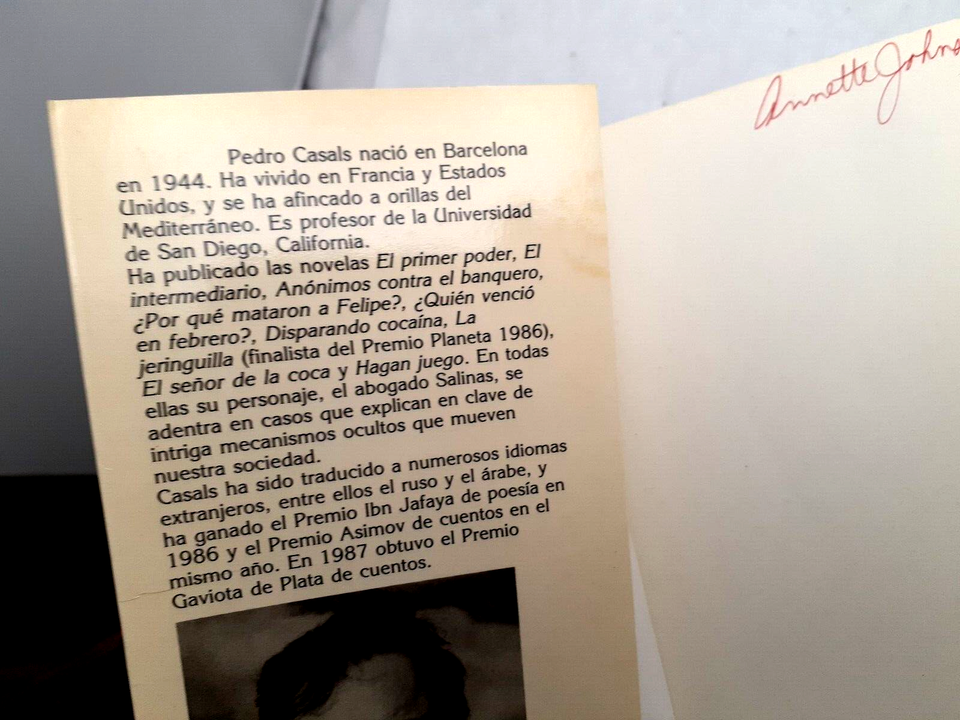 Pedro Casals nació en Barcelona
en 1944. Ha vivido en Francia y Estados
Unidos, y se ha afincado a orillas del
Mediterráneo. Es profesor de la Universidad
de San Diego, California.
Ha publicado las novelas El primer poder, El
intermediario, Anónimos contra el banquero,
¿Por qué mataron a Felipe?, ¿Quién venció
en febrero?, Disparando cocaína, La
jeringuilla (finalista del Premio Planeta 1986),
El señor de la coca y Hagan juego. En todas
ellas su personaje, el abogado Salinas, se
adentra en casos que explican en clave de
intriga mecanismos ocultos que mueven
nuestra sociedad.
Casals ha sido traducido a numerosos idiomas
extranjeros, entre ellos el ruso y el árabe, y
ha ganado el Premio Ibn Jafaya de poesía en
1986 y el Premio Asimov de cuentos en el
mismo año. En 1987 obtuvo el Premio
Gaviota de Plata de cuentos.
Annette